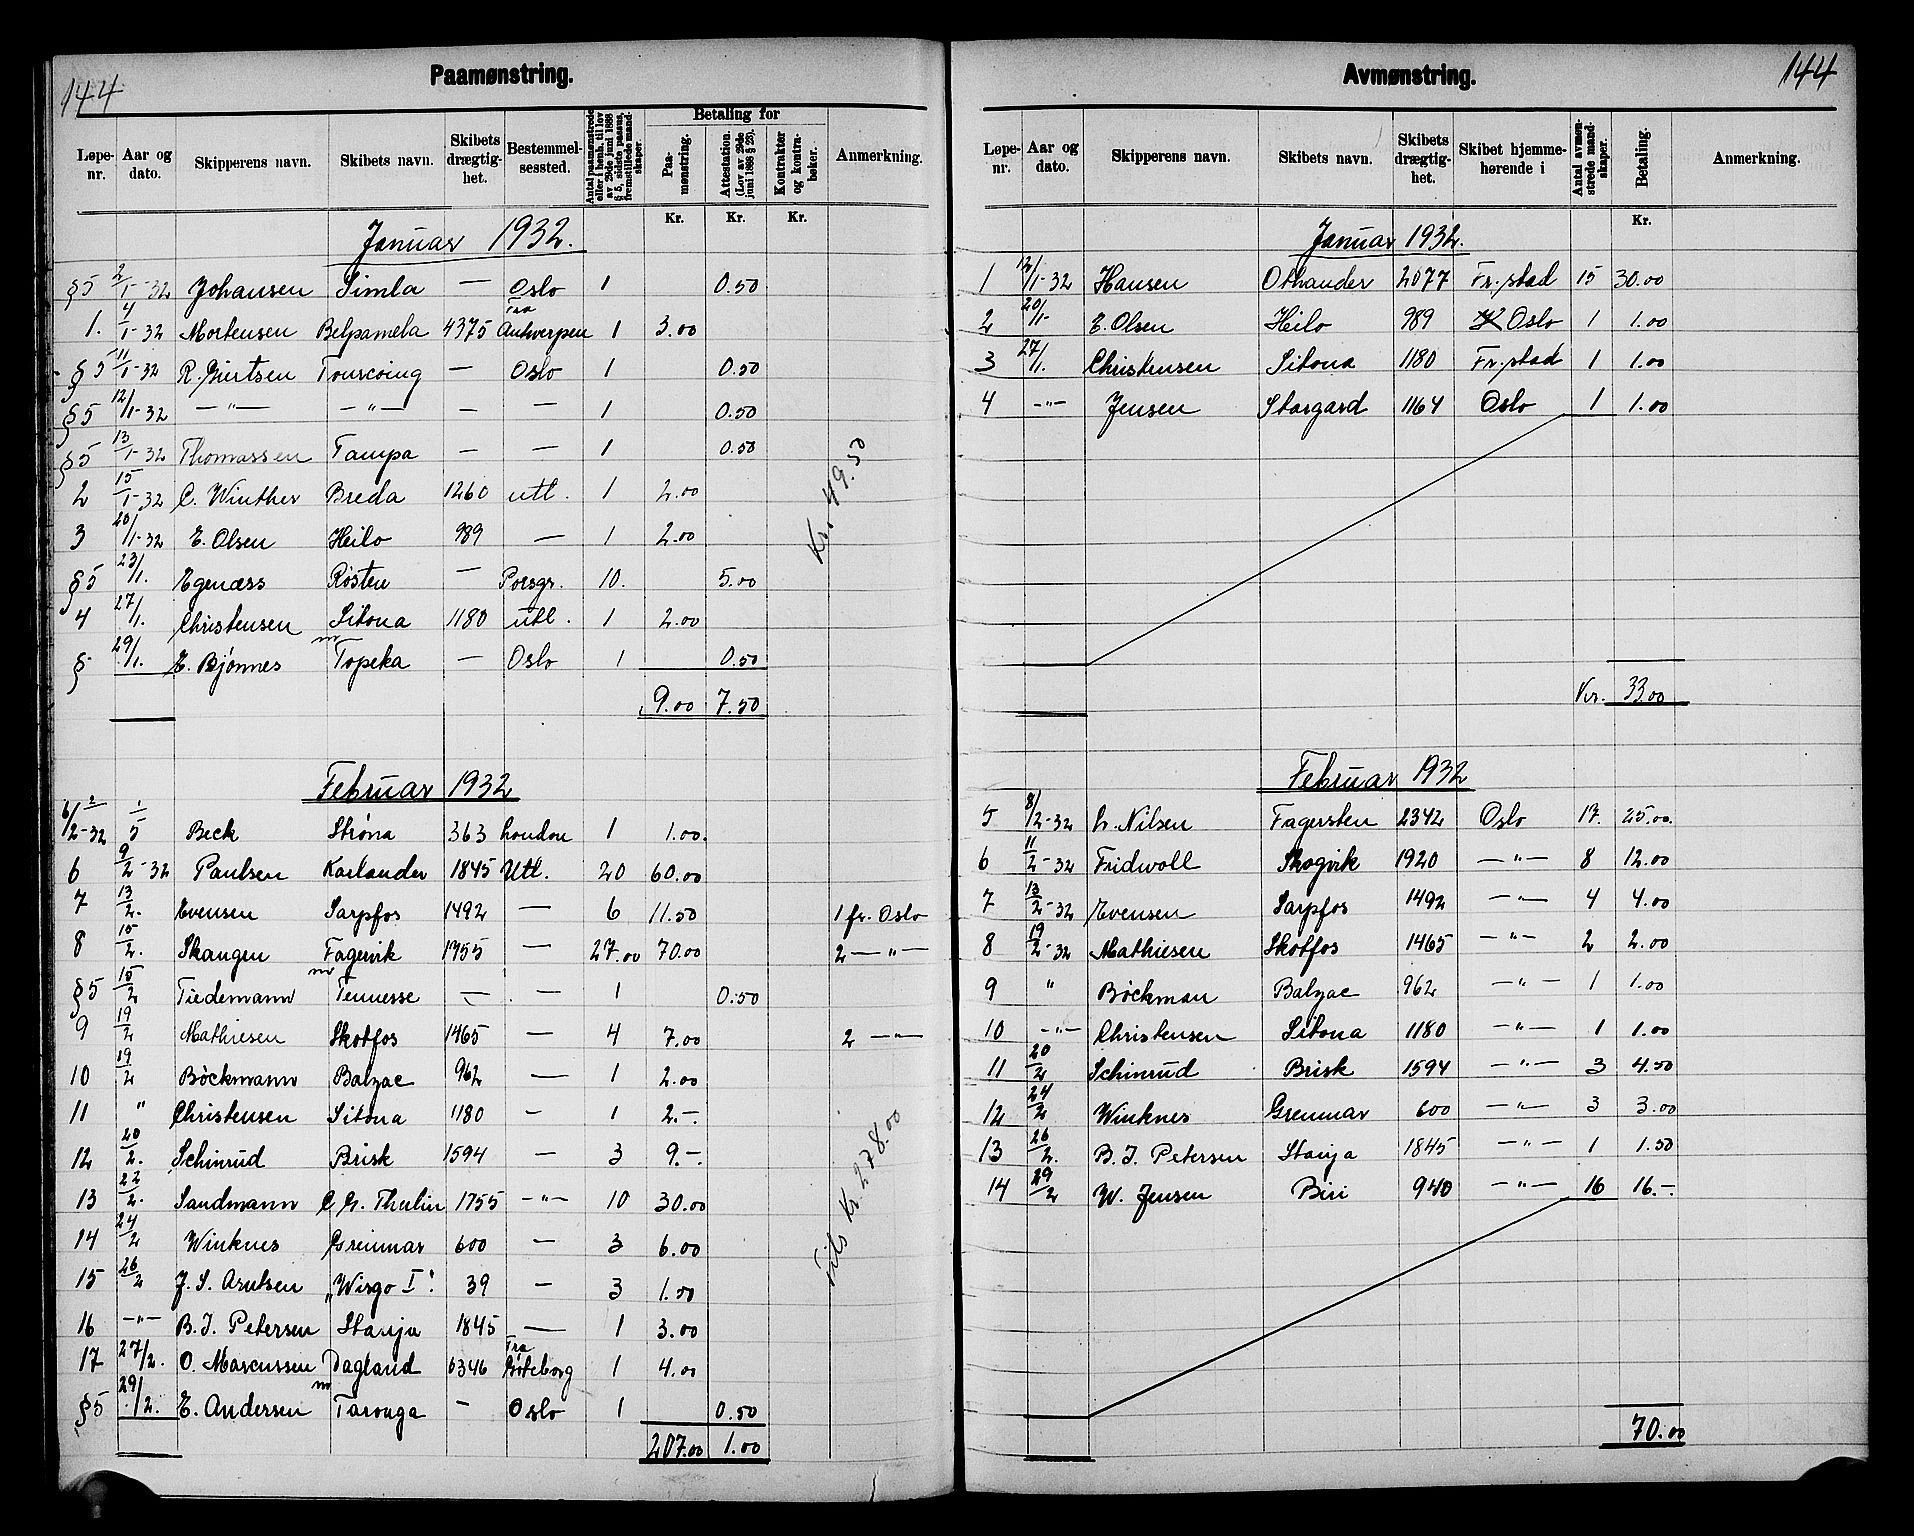 144
Paamønstring.
Løpe-nr. Aar og dato. Skipperens navn. Skibets navn. Skibets drægtig-het. Bestemmel-sessted. Antal paamønstrede eller i henh. til lov av 29de juni 1888 § 5, sidste passus, fremstillede mand-skaper. Betaling for Paa-mønstring. Attestation. (Lov av 29de juni 1888 § 23). Kontrakter og kontra-bøker. Anmerkning.
Kr. Kr. Kr.
Januar 1932.
§5 2/1-32 Johansen Simla — Oslo 1 0.50
1. 4/1-32 Mortensen Belpamela 4375 Fra Antwerpen 1 3.00
§5 11/1-32 R. Biertsen Tourcoing — Oslo 1 0.50
§5 12/1-32 —"— —"— — — 1 0.50
§5 13/1-32 Thomassen Tampa — — 1 0.50
2 15/1-32 C. Winther Breda 1260 utl. 1 2.00
3 20/1-32 E. Olsen Heilo 989 — 1 2.00
§5 23/1. Egenæss Røsten — Porsgr. 10. 5.00
4 27/1. Christensen Sitona 1180 utl. 1 2.00
§ 29/1. E. Bjønnes m/ Topeka — Oslo 1 0.50
9.00 7.50
Kr. 49.50
Februar 1932
6/2-32 5 Beck Strøna 363 London 1 1.00.
6 9/2-32 Paulsen Karlander 1845 Utl. 20 60.00
7 13/2. Evensen Sarpfos 1492 — 6 11.50 1 fr. Oslo
8 15/2. Skaugen Fagervik 1755 — 27.00 70.00 2 —"—
§5 15/2 Tiedemann m/ Tennesse — — 1 0.50
9 19/2 Mathiesen Skotfos 1465 — 4 7.00 2 —"—
10 19/2 Bøckmann Balzac 962 — 1 2.00
11 " Christensen Sitona 1180 — 1 2.—
12 20/2. Schinrud Brisk 1594 — 3 9.—
13 22/2. Sandmann C. G. Thulin 1755 —"— 10 30.00
14 24/2 Winknes Grenmar 600 — 3 6.00
15 26/2 J. S. Arntsen "Wirgo I". 39 — 3 1.50
16 —"— B. J. Petersen Stanja 1845 — 1 3.00
17 27/2. O. Marcussen Dagland 6346 Fra Gøteborg 1 4.00
§5 29/2. E. Andersen m/ Taronga — Oslo 1 0.50
207.00 1.00
Tils Kr. 278.00
144
Avmønstring.
Løpe-nr. Aar og dato. Skipperens navn. Skibets navn. Skibets drægtig-het. Skibet hjemme-hørende i Antal avmøn-strede mand-skaper. Betaling. Anmerkning.
Kr.
Januar 1932.
1 12/1-32 Hansen Othander 2077 Fr.stad 15 30.00
2 20/1- E. Olsen Heilo 989 Oslo 1 1.00
3 27/1. Christensen Sitona 1180 Fr.stad 1 1.00
4 —"— Jensen Stargard 1164 Oslo 1 1.00
Kr. 33.00
Februar 1932
5 8/2-32 L. Nilsen Fagersten 2342 Oslo 17. 25.00.
6 11/2-32 Fridvoll Skogvik 1920 —"— 8 12.00
7 13/2-32 Evensen Sarpfos 1492 —"— 4 4.00
8 19/2-32 Mathiesen Skotfos 1465 —"— 2 2.00
9 " Bøckman Balzac 962 —"— 1 1.00
10 —"— Christensen Sitona 1180 —"— 1 1.00
11 20/2 Schinrud Brisk 1594 —"— 3 4.50
12 24/2 Winknes Grenmar 600 —"— 3 3.00
13 26/2. B. J. Petersen Stanja 1845 —"— 1 1.50
14 29/2 W. Jensen Biri 940 —"— 16 16.—
70.00